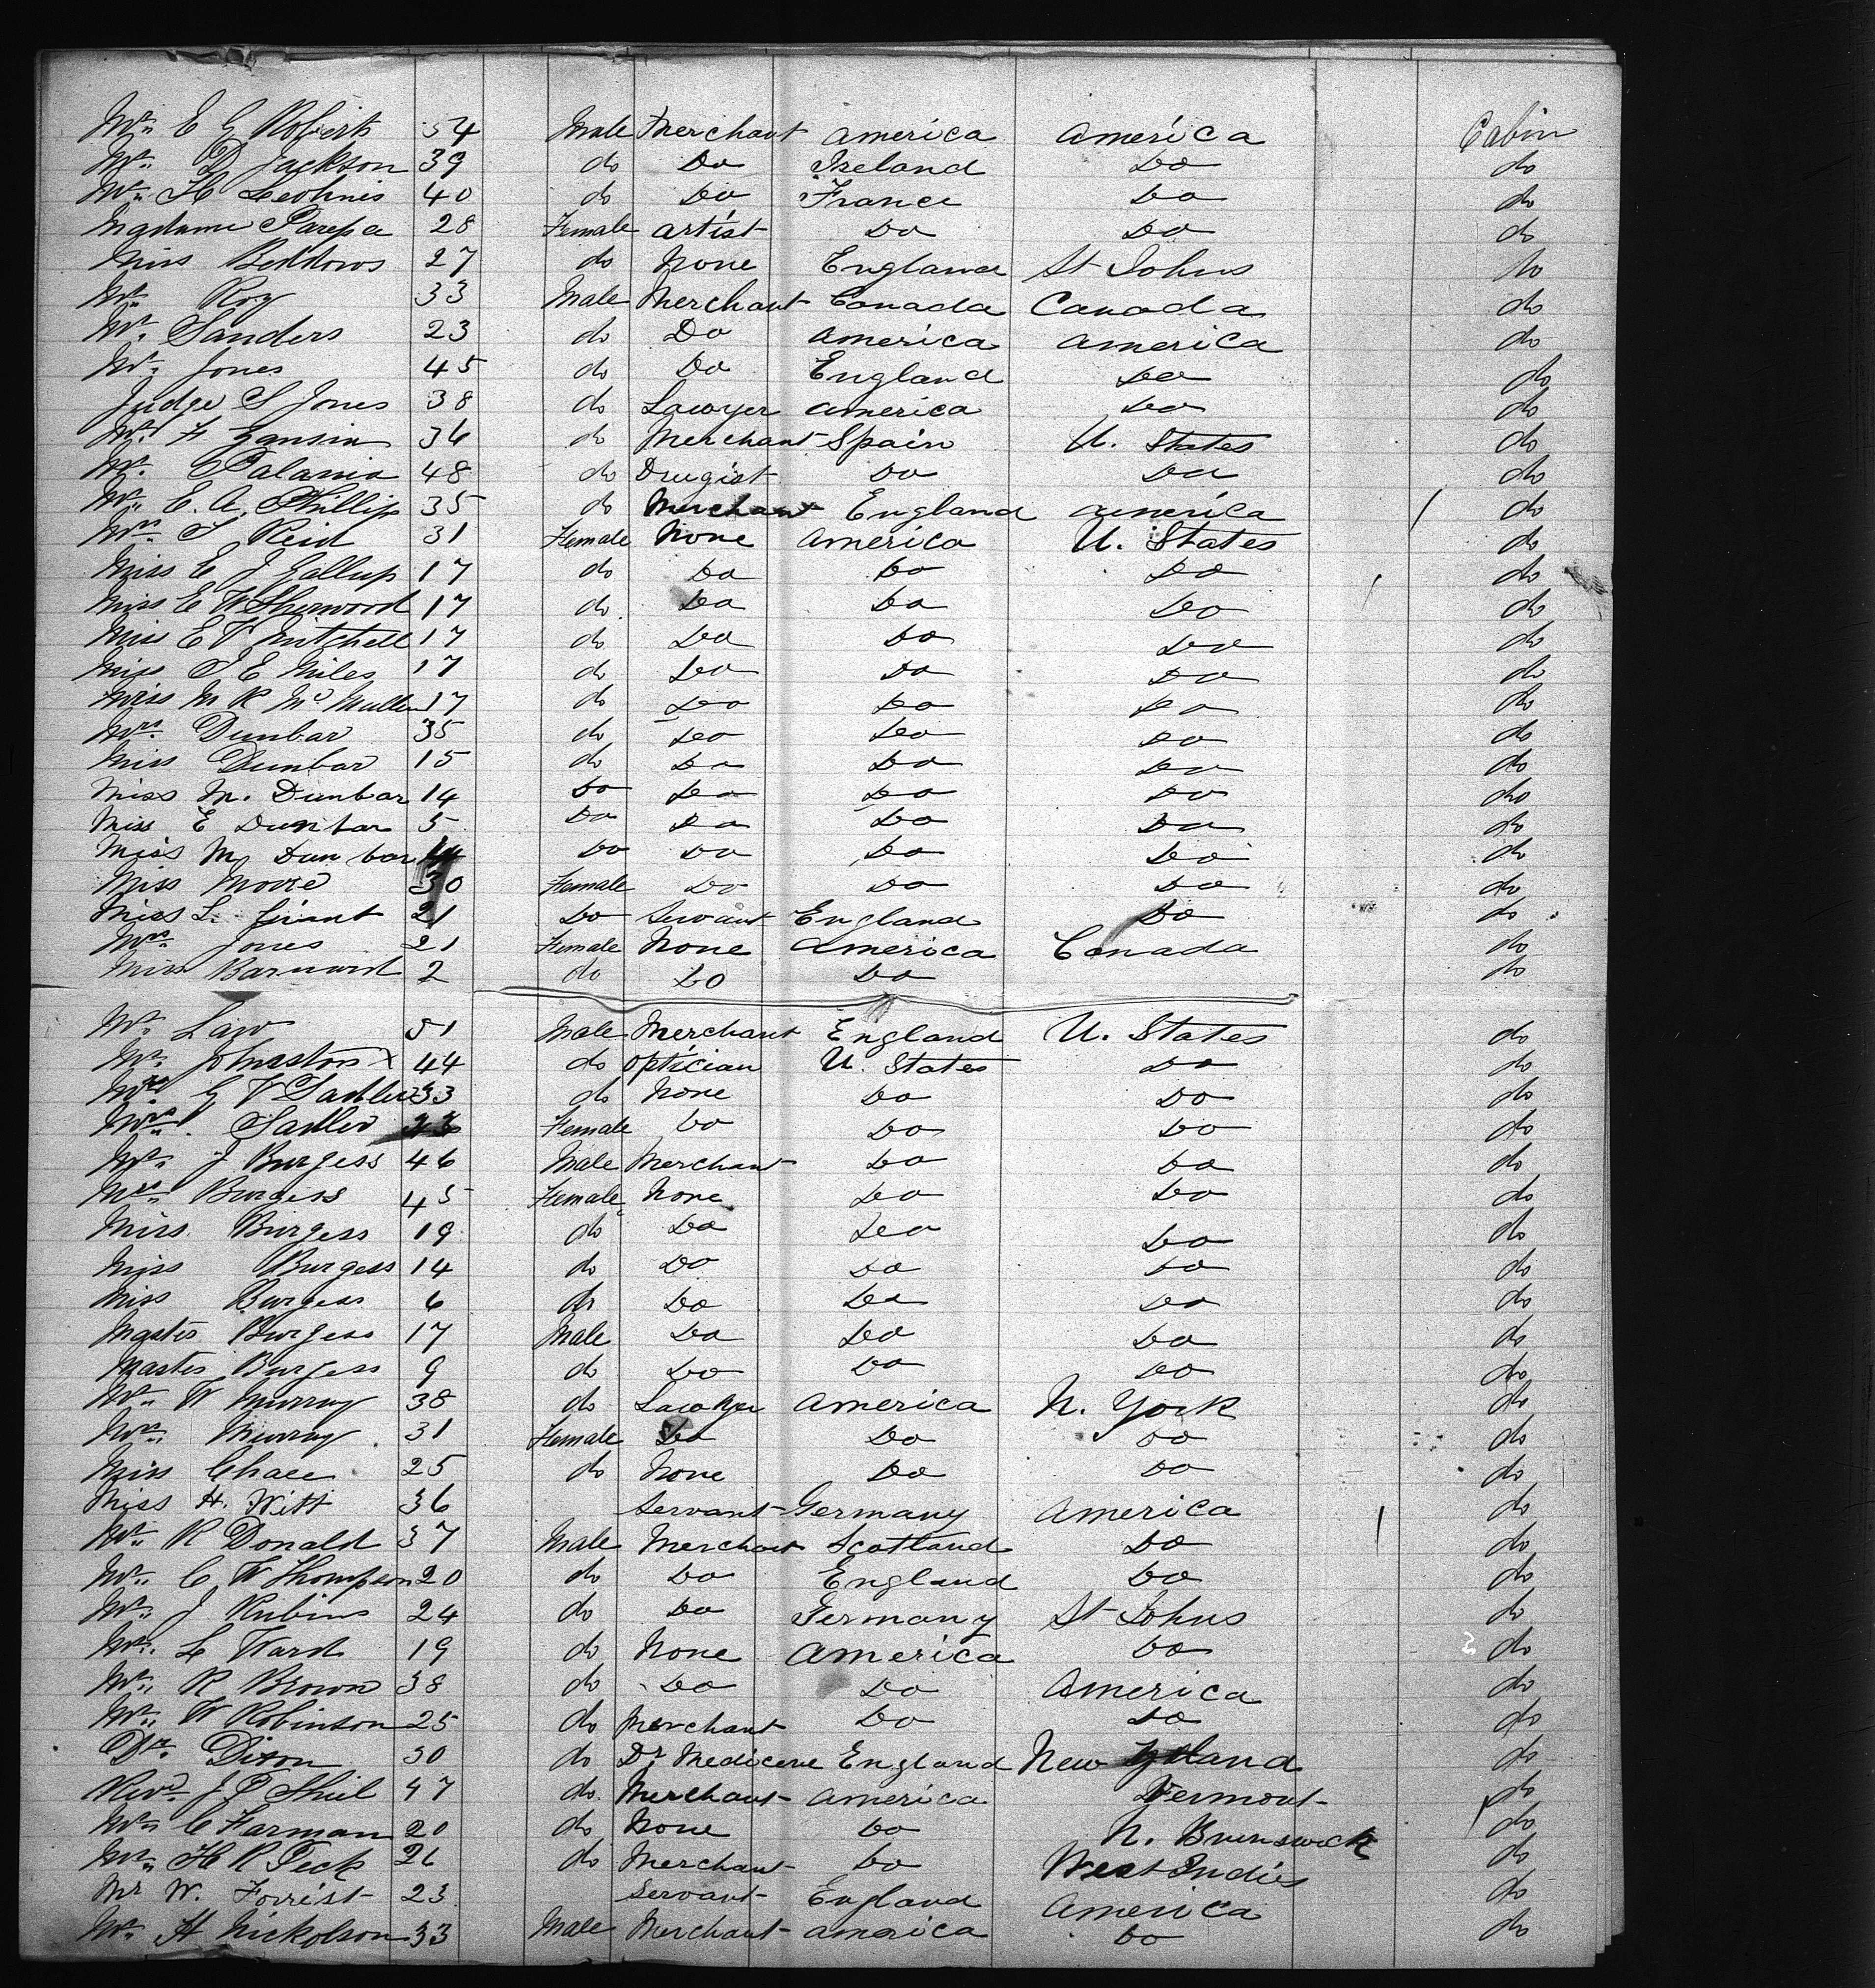 Mr. E G Roberts 54 Male Merchant America America Cabin
Mr. D Jackson 39 do Do Ireland Do do
Mr. H 40 do Do France Do do
Madame Parepa 28 Female Artist Do Do do
Miss Beddows 27 do None England St Johns do
Mr. Roy 33 Male Merchant Canada Canada do
Mr. Sanders 23 do Do America America do
Mr. Jones 45 do Do England Do do
Judge S Jones 38 do Lawyer America Do do
Mr. F 36 do Merchant Spain U. States do
Mr. 48 do Drugist Do Do do
Mr. E. A. Phillips 35 do Merchant England America do
Mrs. T Reid 31 Female None America U. States do
Miss E J Gallup 17 do Do Do Do do
Miss E W Sherwood 17 do Do Do Do do
Miss E V Mitchell 17 do Do Do Do do
Miss J E Miles 17 do Do Do Do do
Miss M R Mc Mullen 17 do Do Do Do do
Mrs. Dunbar 35 do Do Do Do do
Miss Dunbar 15 do Do Do Do do
Miss M. Dunbar 14 Do Do Do Do do
Miss E Dunbar 5 Do Do Do Do do
Miss M Dunbar Do Do Do Do do
Miss Moore 30 Female Do Do Do do
Miss L. Grant 21 Do Servant England Do do
Mrs. Jones 21 Female None America Canada do
Miss Barnard 2 do Do Do do
Mr. Law 51 Male Merchant England U. States do
Mr. Johnston x 44 do Optician U. States Do do
Mr. G V Sadler 33 do None Do Do do
Mrs. Sadler Female Do Do Do do
Mr. J Burgess 46 Male Merchant Do Do do
Mrs. Burgess 45 Female None Do Do do
Miss Burgess 19 do Do Do Do do
Miss Burgess 14 do Do Do Do do
Miss Burgess 6 do Do Do Do do
Master Burgess 17 Male Do Do Do do
Master Burgess 9 do Do Do Do do
Mr. W Murray 38 do Lawyer America N. York do
Mrs. Murray 31 Female Do Do Do do
Miss Chace 25 do None Do Do do
Miss H. Witt 36 Servant Germany America do
Mr. R Donald 37 Male Merchant Scotland Do do
Mr. C W Thompson 20 do Do England Do do
Mr. J Rubins 24 do Do Germany St Johns do
Mr. L Ward 19 do None America Do do
Mr. R Brown 38 do Do Do America do
Mr. W Robinson 25 do Merchant Do Do do
Dr. Dixon 30 do Dr Medicene England New do
Revd. J P Shiel 47 do. Merchant America Vermont do
Mr. C Farman 20 do None Do N. Brunswick do
Mr. H R Peck 26 do Merchant Do West Indies do
Mr W. Forrest 23 Servant England America do
Mr. H Nickolson 33 Male Merchant America Do do